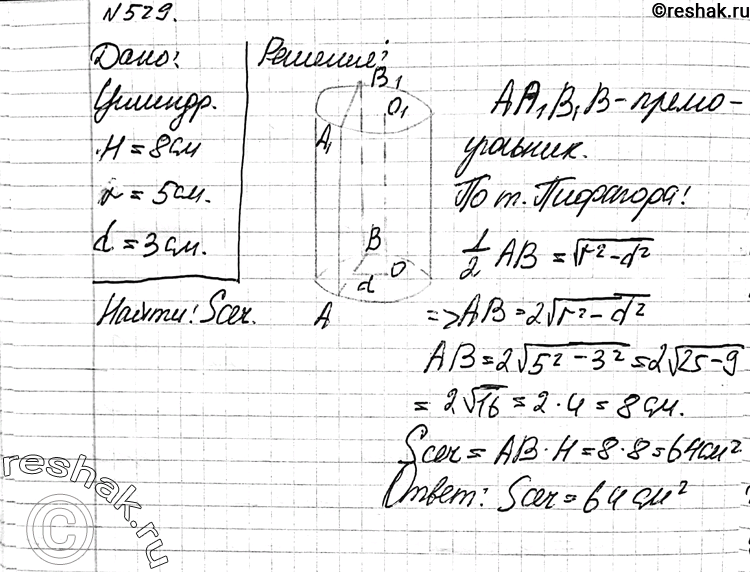 ©reshak.ru
№529.
Дано:
Цилиндр.
H = 8 см
r = 5 см.
d = 3 см.
Найти: Sсеч.
Решение:
B₁
O₁
A₁
B
O
d
A
AA₁B₁B – прямо-
угольник.
По т. Пифагора:
1/2 AB = √(r² – d²)
=> AB = 2√(r² – d²)
AB = 2√(5² – 3²) = 2√(25 – 9)
= 2√16 = 2 · 4 = 8 см.
Sсеч = AB · H = 8 · 8 = 64 см²
Ответ: Sсеч = 64 см²
reshak.ru
©